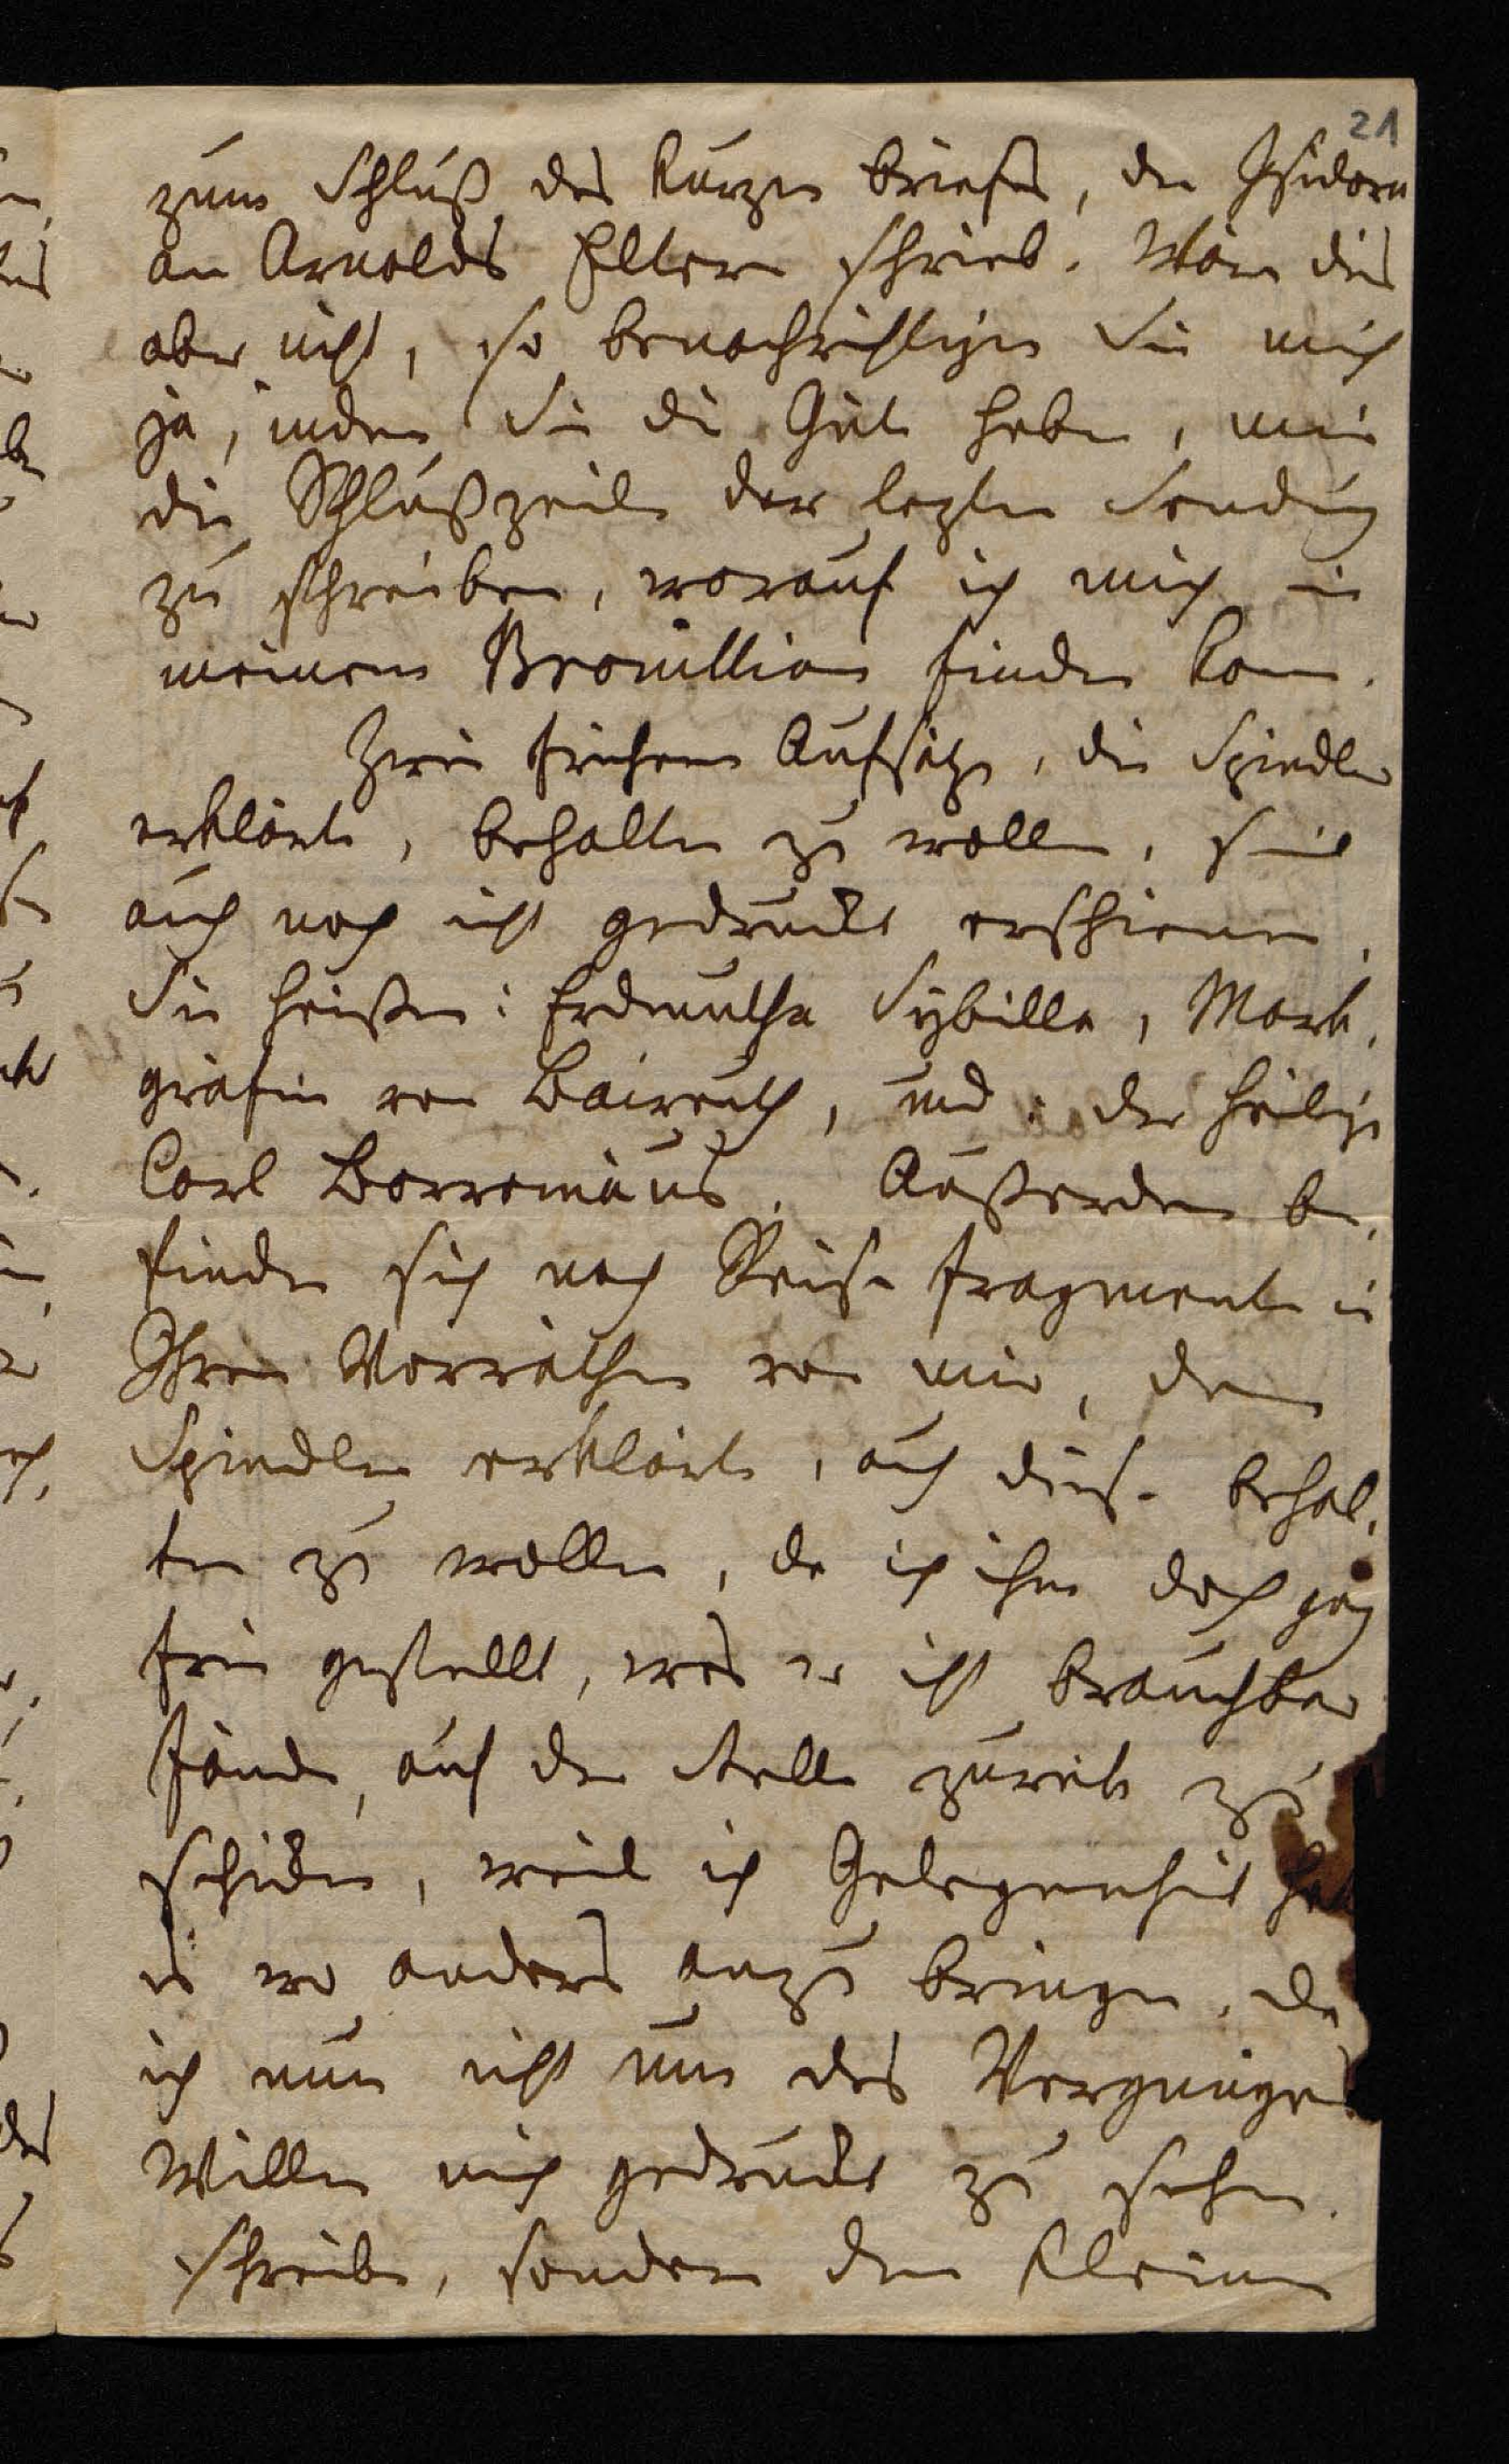 21
zum Schluß des kurzen Briefes, den Isidora
an Arnolds Eltern schrieb. Wäre dies
aber nicht, so benachrichtigen Sie mich
ja, indem Sie die Güte haben, mir
die Schlußzeile der lezten Sendung
zu schreiben, worauf ich mich in
meinem Brouillion finden kann.
Zwei frühere Aufsätze, die Spindler
erklärte, behalten zu wollen, sind
auch noch nicht gedruckt erschienen.
Sie heißen: Erdmuthe Sybille, Mark-
gräfin von Baireuth, und: der heilige
Carl Borromäus. Außerdem be-
finden sich noch Reise fragmente in
Ihren Vorräthen von mir, denn
Spindler erklärte, auch diese behal-
ten zu wollen, da ich ihm doch ganz
frei gestellt, was er nicht brauchbar
fände, auf der stelle zurück zu
schicken, weil ich Gelegenheit habe
es wo anders anzu bringen, da
ich nun nicht um des Vergnügens
Willen mich gedruckt zu sehen
schreibe, sondern den kleinen